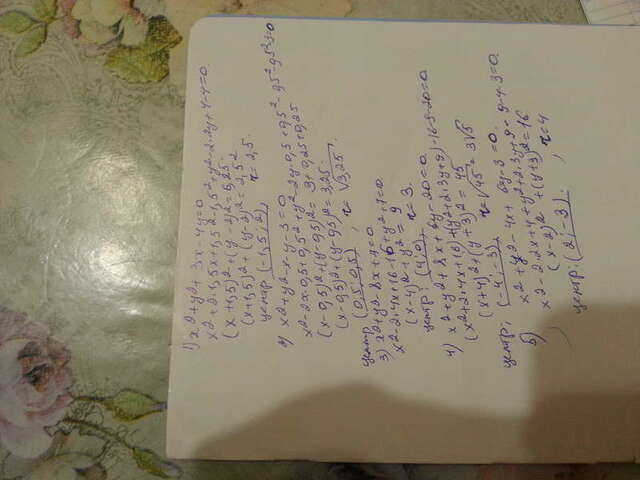 1) x²+y²+3x-4y=0
x²+2·1,5x+1,5²-1,5²+y²-2·2y+4-4=0
(x+1,5)²+(y-2)²=6,25
(x+1,5)²+(y-2)²=2,5²
центр (-1,5; 2), r=2,5.
2) x²+y²-x-y-3=0
x²-2x·0,5+0,5²+y²-2y·0,5+0,5²
(x-0,5)²+(y-0,5)²=3+0,25+0,25
(x-0,5)²+(y-0,5)²=3,25
центр (0,5; 0,5), r=√3,25.
3) x²+y²-8x+7=0
x²-2·4x+16-16+y²+7=0
(x-4)²+y²=9
центр: (4; 0), r=3.
4) x²+y²+8x+6y-20=0
(x²+2·4x+16)+(y²+2·3y+9)-16-9-20=0
(x+4)²+(y+3)²=45
центр: (-4; -3), r=√45=3√5
5) x²+y²-4x+6y-3=0
x²-2·2x+4+y²+2·3y+9-9-4-3=0
(x-2)²+(y+3)²=16
центр: (2; -3), r=4